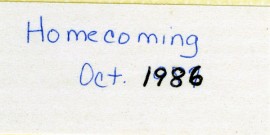 Homecoming
Oct. 1986